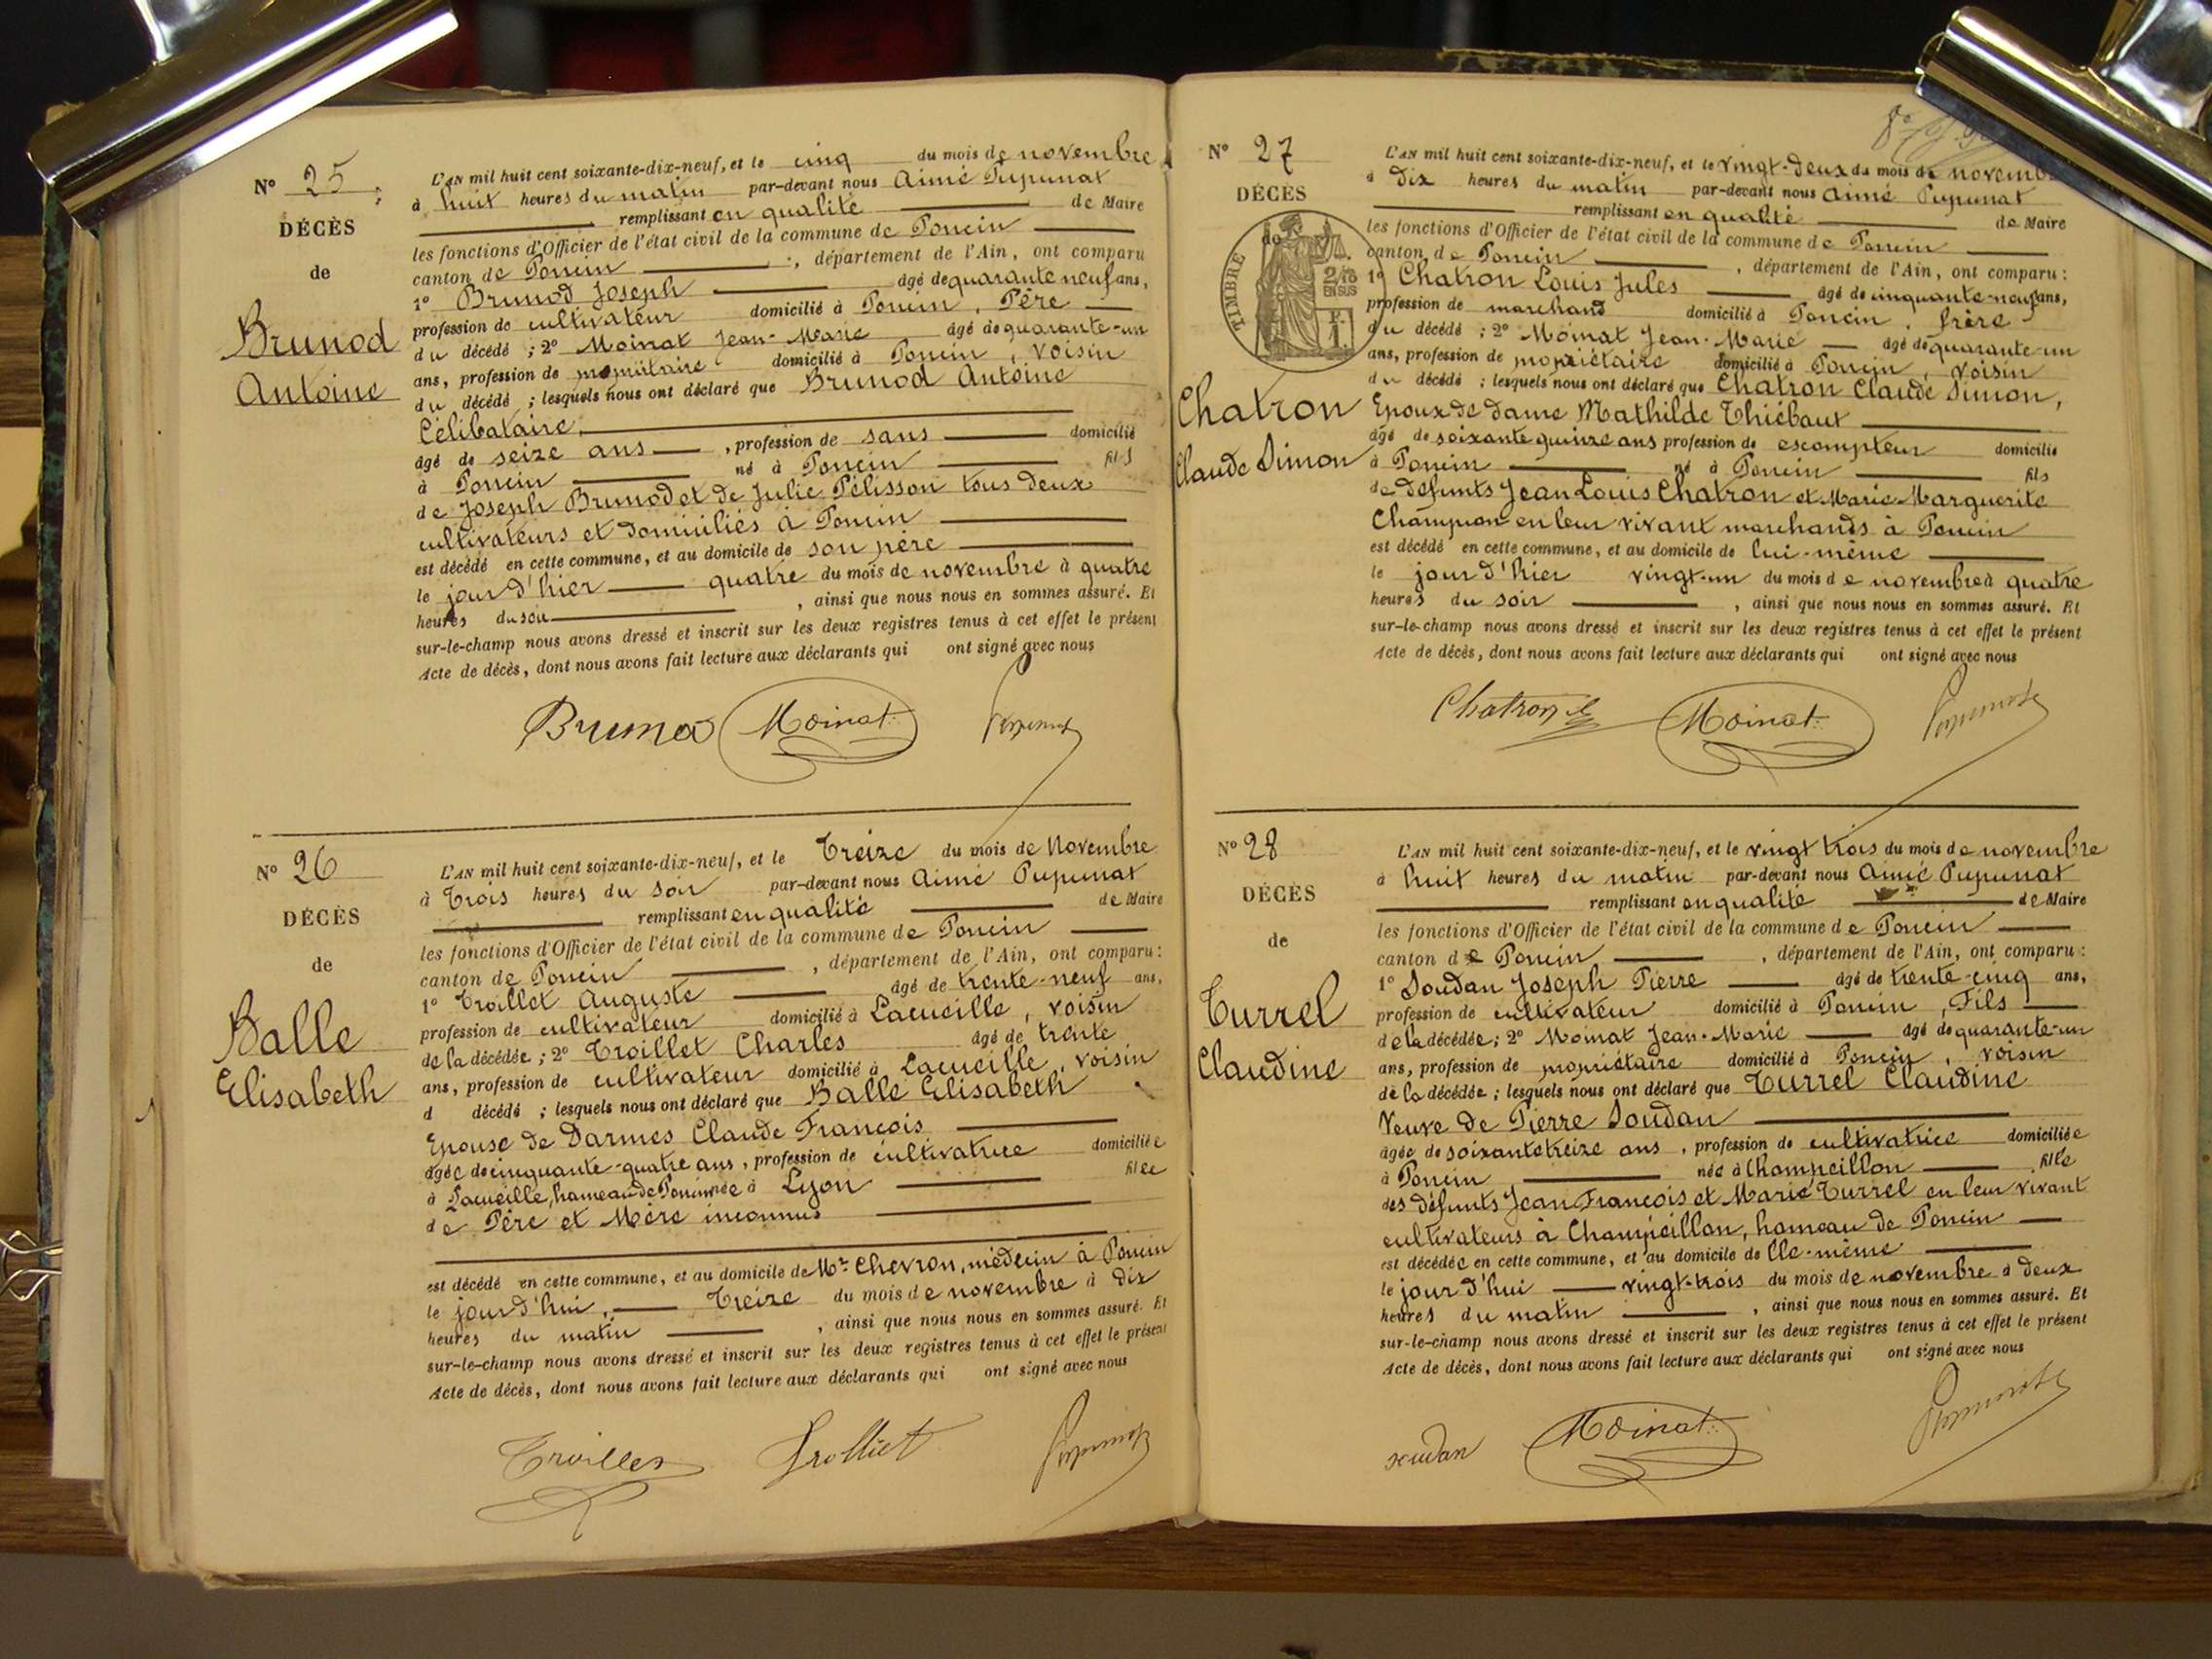 N° 25
DÉCÈS
de
Brunod
Antoine
L'AN mil huit cent soixante-dix-neuf, et le cinq du mois de novembre
à huit heures du matin par-devant nous Aimé Pupunat
remplissant en qualité de Maire
les fonctions d'Officier de l'état civil de la commune de Poncin
canton de Poncin, département de l'Ain, ont comparu
1° Brunod Joseph âgé de quarante neuf ans,
profession de cultivateur domicilié à Poncin, Père
du décédé ; 2° Moinat Jean-Marie âgé de quarante-un
ans, profession de propriétaire domicilié à Poncin, voisin
du décédé ; lesquels nous ont déclaré que Brunod Antoine
Célibataire,
âgé de seize ans, profession de sans domicilié
à Poncin né à Poncin fils
de Joseph Brunod et de Julie Pélisson tous deux
cultivateurs et domiciliés à Poncin
est décédé en cette commune, et au domicile de son père
le jour d'hier quatre du mois de novembre à quatre
heures du soir, ainsi que nous nous en sommes assuré. Et
sur-le-champ nous avons dressé et inscrit sur les deux registres tenus à cet effet le présent
Acte de décès, dont nous avons fait lecture aux déclarants qui ont signé avec nous
Brunod Moinat Pupunat
N° 26
DÉCÈS
de
Balle
Elisabeth
L'AN mil huit cent soixante-dix-neuf, et le Treize du mois de Novembre
à Trois heures du soir par-devant nous Aimé Pupunat
remplissant en qualité de Maire
les fonctions d'Officier de l'état civil de la commune de Poncin
canton de Poncin, département de l'Ain, ont comparu :
1° Troillet Auguste âgé de trente-neuf ans,
profession de cultivateur domicilié à Lacueille, voisin
de la décédée ; 2° Troillet Charles âgé de trente
ans, profession de cultivateur domicilié à Lacueille, voisin
d décédé ; lesquels nous ont déclaré que Balle Elisabeth
Epouse de Darmes Claude François
âgée de cinquante-quatre ans, profession de cultivatrice domiciliée
à Lacueille, hameau de Poncin née à Lyon fille
de Père et Mère inconnus
est décédé en cette commune, et au domicile de Mr Chevron, médecin à Poncin
le jour d'hui, Treize du mois de novembre à dix
heures du matin, ainsi que nous nous en sommes assuré. Et
sur-le-champ nous avons dressé et inscrit sur les deux registres tenus à cet effet le présent
Acte de décès, dont nous avons fait lecture aux déclarants qui ont signé avec nous
Troillet Trolliet Pupunat
N° 27
DÉCÈS
de
TIMBRE
2/10
EN SUS
Chatron
Claude Simon
L'AN mil huit cent soixante-dix-neuf, et le vingt-deux du mois de novembre
à Dix heures du matin par-devant nous Aimé Pupunat
remplissant en qualité de Maire
les fonctions d'Officier de l'état civil de la commune de Poncin
canton de Poncin, département de l'Ain, ont comparu :
1° Chatron Louis Jules âgé de cinquante-neuf ans,
profession de marchand domicilié à Poncin, frère
du décédé ; 2° Moinat Jean-Marie âgé de quarante-un
ans, profession de propriétaire domicilié à Poncin, voisin
du décédé ; lesquels nous ont déclaré que Chatron Claude Simon,
Epoux de dame Mathilde Thiébaut
âgé de soixante quinze ans profession de escompteur domicilié
à Poncin né à Poncin fils
de défunts Jean Louis Chatron et Marie-Marguerite
Champion en leur vivant marchands à Poncin
est décédé en cette commune, et au domicile de lui-même
le jour d'hier vingt-un du mois de novembre à quatre
heures du soir, ainsi que nous nous en sommes assuré. Et
sur-le-champ nous avons dressé et inscrit sur les deux registres tenus à cet effet le présent
Acte de décès, dont nous avons fait lecture aux déclarants qui ont signé avec nous
Chatron Moinat Pupunat
N° 28
DÉCÈS
de
Turrel
Claudine
L'AN mil huit cent soixante-dix-neuf, et le vingt trois du mois de novembre
à huit heures du matin par-devant nous Aimé Pupunat
remplissant en qualité de Maire
les fonctions d'Officier de l'état civil de la commune de Poncin
canton de Poncin, département de l'Ain, ont comparu :
1° Soudan Joseph Pierre âgé de trente-cinq ans,
profession de cultivateur domicilié à Poncin, Fils
de la décédée ; 2° Moinat Jean-Marie âgé de quarante-un
ans, profession de propriétaire domicilié à Poncin, voisin
de la décédée ; lesquels nous ont déclaré que Turrel Claudine
Veuve de Pierre Soudan
âgée de soixante treize ans, profession de cultivatrice domiciliée
à Poncin née à Champeillon fille
des défunts Jean François et Marie Turrel en leur vivant
cultivateurs à Champeillon, hameau de Poncin
est décédée en cette commune, et au domicile de elle-même
le jour d'hui vingt-trois du mois de novembre à deux
heures du matin, ainsi que nous nous en sommes assuré. Et
sur-le-champ nous avons dressé et inscrit sur les deux registres tenus à cet effet le présent
Acte de décès, dont nous avons fait lecture aux déclarants qui ont signé avec nous
soudan Moinat Pupunat